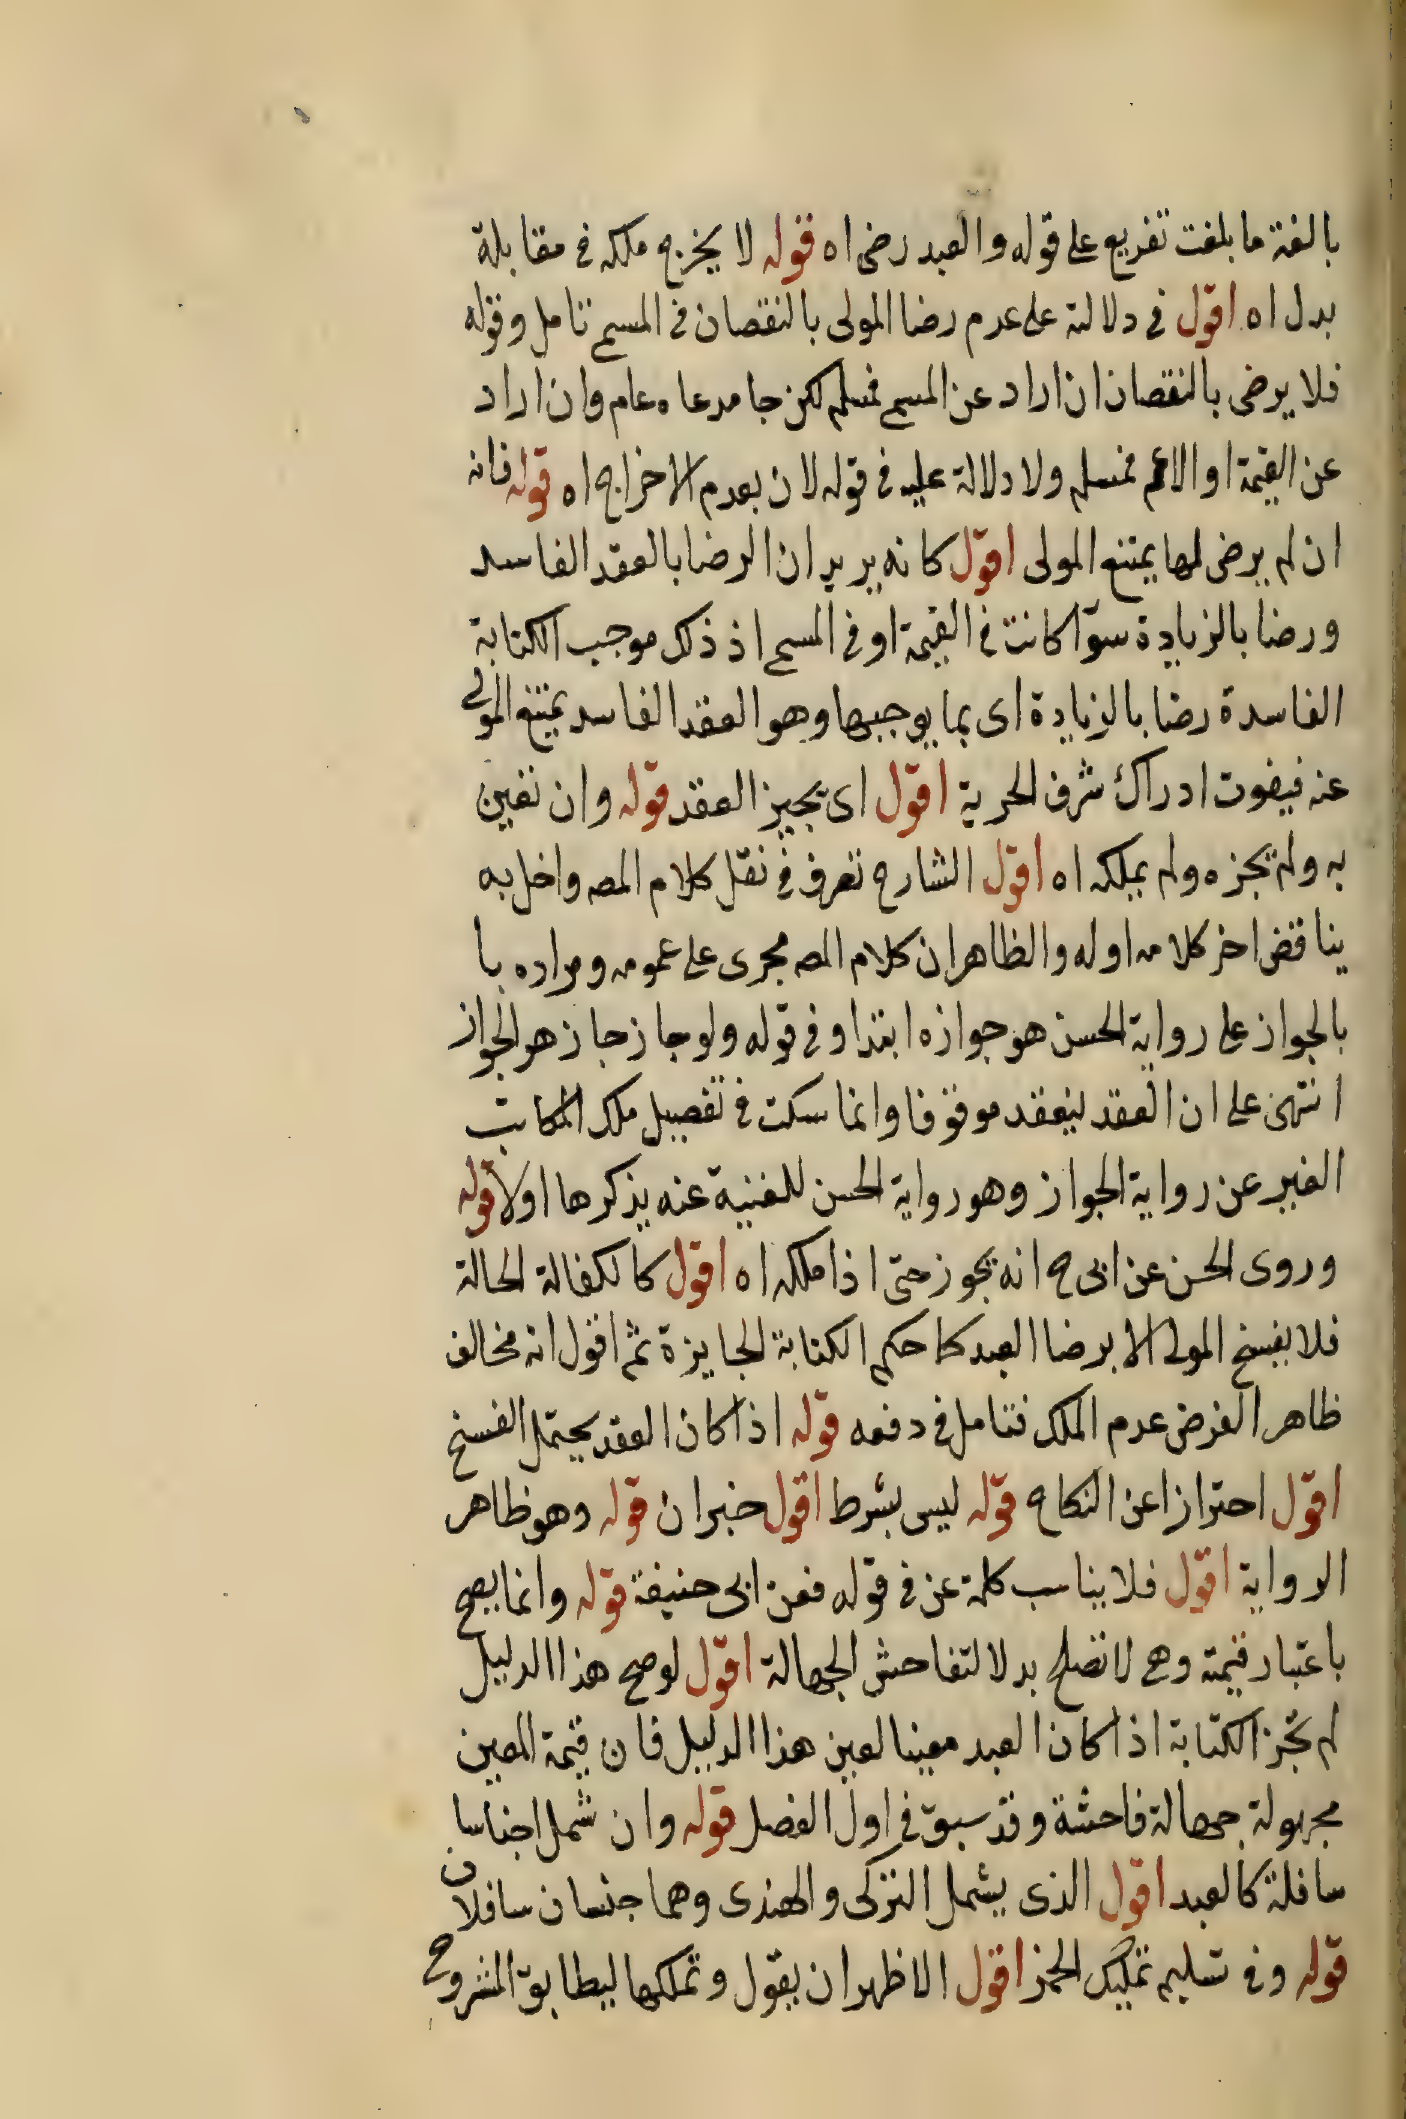 بالغة ما بلغت تفريع على قوله والعبد رضى اه قوله لا يخرج ملكه فى مقابلة
بدل اه اقول فى دلالته على عدم رضا المولى بالنقصان فى المسمى تامل وقوله
فلا يرضى بالنقصان ان اراد عن المسمى فمسلم لكن جا مدعاه عام وان اراد
عن القيمة او الاعم فمسلم ولا دلالة عليه فى قوله لان بعدم الاخراج اه قوله فانه
ان لم يرض لمها يمتنع المولى اقول كانه يريد ان الرضا بالعقد الفاسد
ورضا بالزيادة سوآ كانت فى القيمة او فى المسمى اذ ذلك موجب الكتابة
الفاسدة رضا بالزيادة اى بما يوجبها وهو العقد الفاسد يمتنع المولى
عنه فيفوت ادراك شرف الحرية اقول اى يجيز العقد قوله وان تعين
به ولم يجزه ولم يملكه اه اقول الشارح تصرف فى نقل كلام المصه واخل به
يناقض اخر كلامه اوله والظاهر ان كلام المصه مجرى على عمومه ومراده با
بالجواز على رواية الحسن هو جوازه ابتدا وفى قوله ولو جاز جاز هو الجواز
انتهى على ان العقد ينعقد موقوفا وانما سكت فى تفصيل ملك المكاتب
الغير عن رواية الجواز وهو رواية الحسن للغنية عنه يذكرها اولا قوله
وروى الحسن عن ابى ح انه يجوز حتى اذا ملكه اه اقول كالكفالة الحالة
فلا يفسخ المولى الا برضا العبد كما حكم الكتابة الجايزة ثم اقول انه مخالف
ظاهر الفرض عدم الملك فتامل فى دفعه قوله اذا كان العقد يحتمل الفسخ
اقول احترازا عن النكاح قوله ليس بشرط اقول خبر ان قوله وهو ظاهر
الرواية اقول فلا يناسب كلمة عن فى قوله فعن ابى حنيفة قوله وانما يصح
باعتبار قيمته وهى لا تصلح بدلا لتفاحش الجهالة اقول لو صح هذا الدليل
لم تجز الكتابة اذا كان العبد معينا لعين هذا الدليل فان قيمة المعين
مجهولة جهالة فاحشة وقد سبق فى اول الفصل قوله وان شمل اجناسا
سافلة كالعبد اقول الذى يشمل التركى والهندى وهما جنسان سافلان
قوله وفى تسليم تمليك الخمر اقول الاظهر ان يقول وتملكها ليطابق المشروح